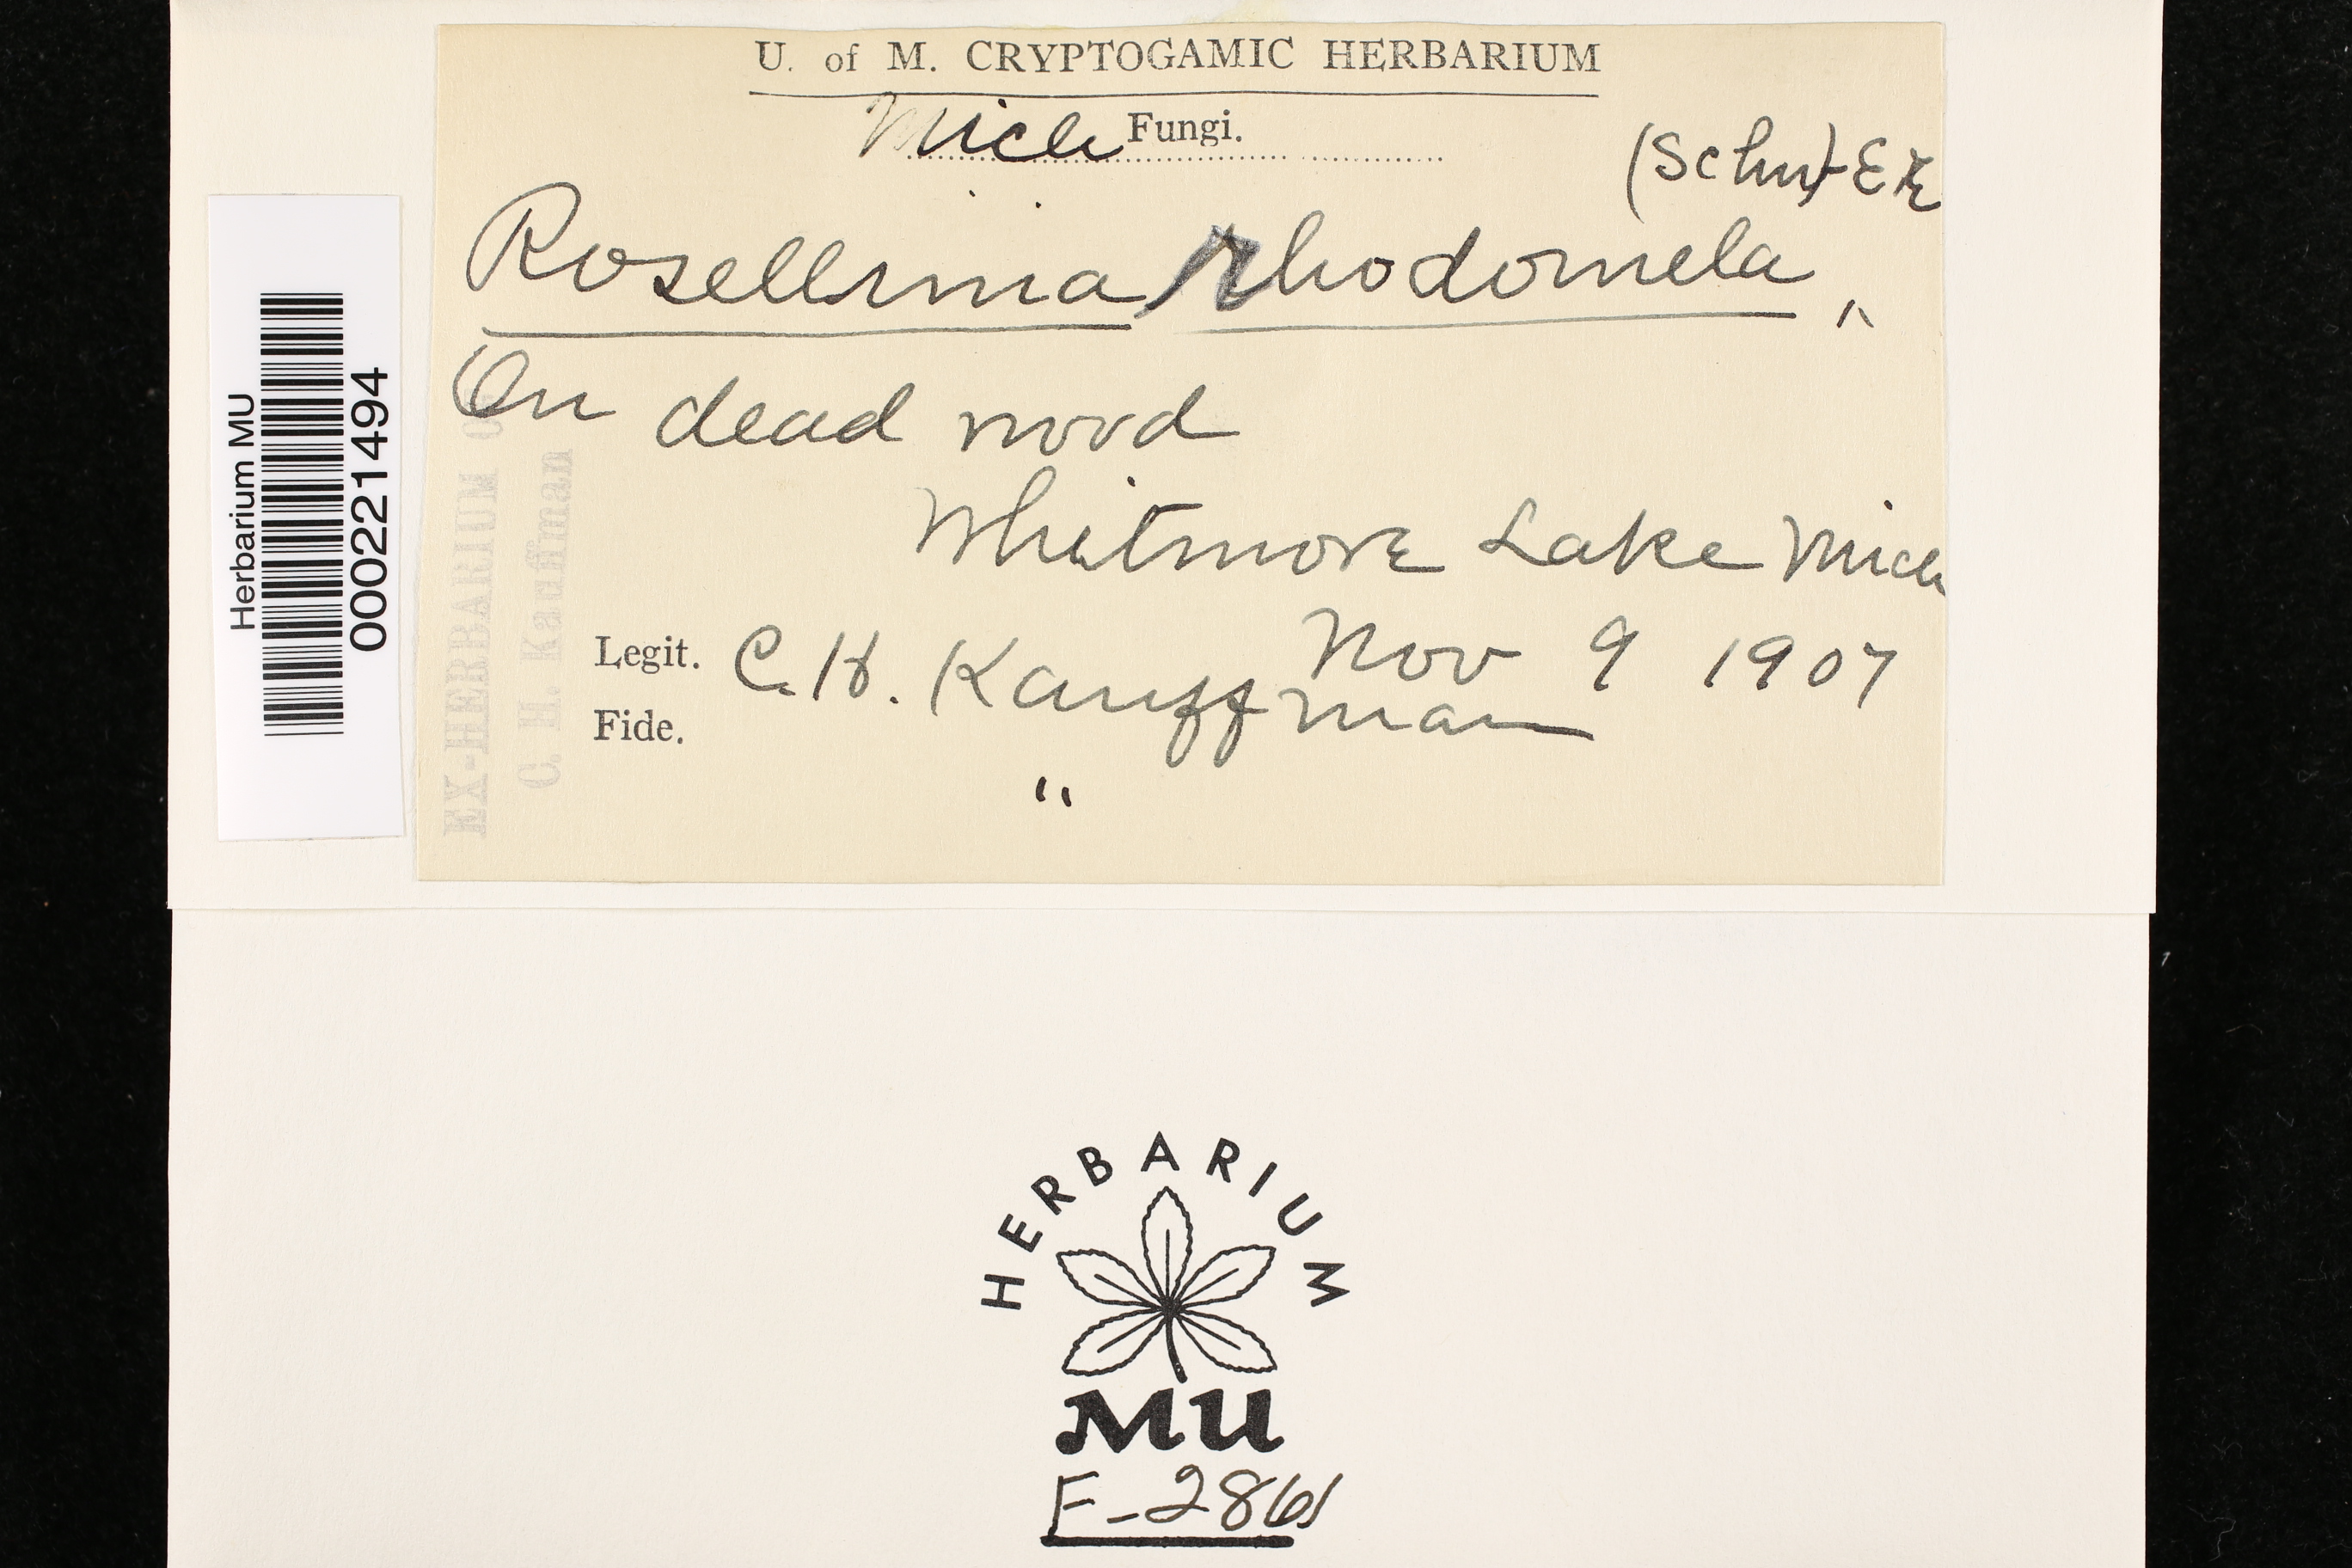 U. of M. CRYPTOGAMIC HERBARIUM
Mich Fungi.
(Schw) E & E
Rosellinia rhodomela "
On dead wood
Whitmore Lake Mich
Nov 9 1907
Legit. C. H. Kauffman
Fide. "
EX-HERBARIUM OF
C. H. Kauffman
Herbarium MU
000221494
HERBARIUM
MU